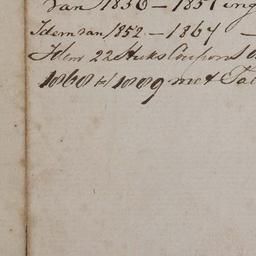 van 1836 – 1851 ing
Idem van 1852 – 1867 –
Idem 22 Stuks Coupons
1868 t/1889 met Tal